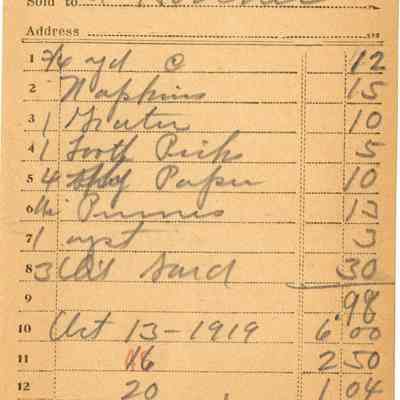 Sold to
Address
1 3/4 yd @ 12
2 Napkins 15
3 1 Grater 10
4 1 Tooth Pick 5
5 4 Paper 10
6 Prunes 13
7 1 3
8 3 Oil Sard 30
9 .98
10 Oct 13-1919 6 00
11 16 2 50
12 20 1 04